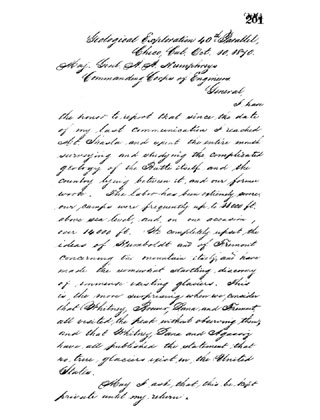 201
Geological Exploration 40th Parallel,
Chico, Cal. Oct. 10, 1870.
Maj. Genl A. A. Humphreys
Commanding Corps of Engineers
General,
I have
the honor to report that since the date
of my last communication I reached
Mt. Shasta and spent the entire month
surveying and studying the complicated
geology of the Butte itself and the
country lying between it, and our former
work. The labor has been extremely severe
our camps were frequently up to 
above sea level, and, on one occasion,
over 14000 ft. We completely upset the
ideas of Humboldt and of Fremont
concerning the mountain itself, and have
made the somewhat startling discovery
of immense existing glaciers. This
is the more surprising when we consider
that Whitney, Brewer, Dana and Fremont
all visited the peak without observing them,
and that Whitney, Dana and Agassiz
have all published the statement that
no true glaciers exist in the United
States.
May I ask, that this be kept
private until my return.